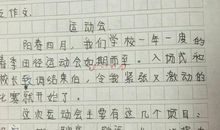 作文
运动会
阳春四月，我们学校一年一度的
春季田径运动会如期而至。入场式和
校长致词结束后，令我紧张又激动的
比赛就开始了。
这次运动会主要有这几个项目：